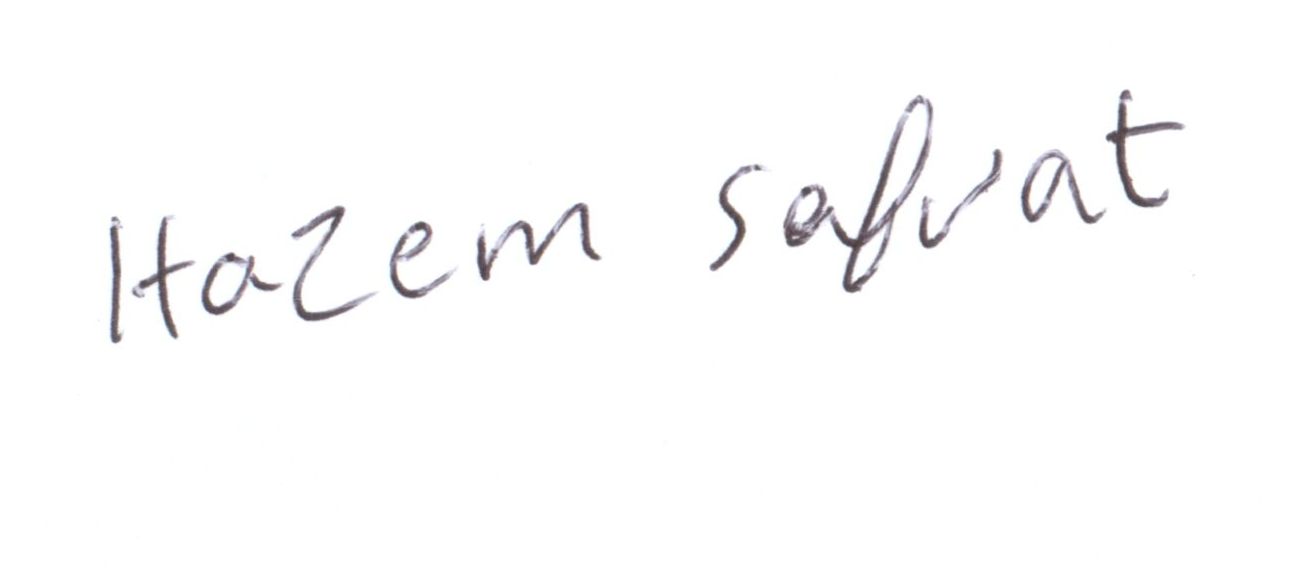 Hazem safvat